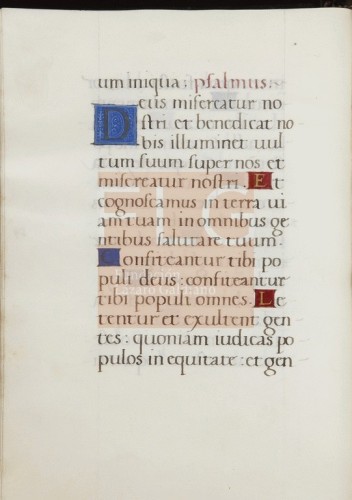 um iniqua: psalmus.
Deus misereatur no
stri et benedicat no
bis illuminet uul
tum suum super nos et
misereatur nostri. Et
cognoscamus in terra ui
am tuam in omnibus ge
ntibus salutare tuum.
Confiteantur tibi po
puli deus: confiteantur
tibi populi omnes. Le
tentur et exultent gen
tes: quoniam iudicas po
pulos in equitate: et gen
FLG
Lázaro Galdiano